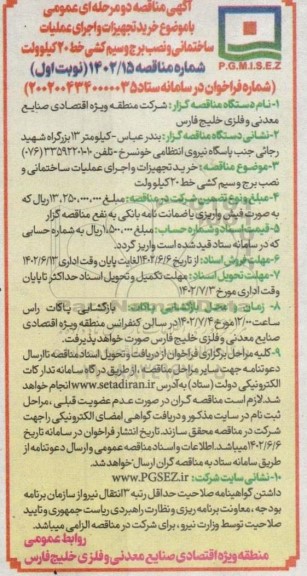 آگهی مناقصه دو مرحله ای عمومی
با موضوع خرید تجهیزات و اجرای عملیات
ساختمانی و نصب برج و سیم کشی خط ۲۰ کیلوولت
شماره مناقصه ۱۴۰۲/۱۵ (نوبت اول)
P.G.M.I.S.E.Z
(شماره فراخوان در سامانه ستاد ۲۰۰۲۰۰۴۳۴۰۰۰۰۰۳۵)
۱- نام دستگاه مناقصه گزار: شرکت منطقه ویژه اقتصادی صنایع
معدنی و فلزی خلیج فارس
۲- نشانی دستگاه مناقصه گزار: بندرعباس - کیلومتر ۱۳ بزرگراه شهید
رجائی جنب پاسگاه نیروی انتظامی خونسرخ - تلفن ۱۰-۳۳۵۹۲۲۰۱ (۰۷۶)
۳- موضوع مناقصه: خرید تجهیزات و اجرای عملیات ساختمانی و
نصب برج و سیم کشی خط ۲۰ کیلوولت
۴- مبلغ و نوع تضمین شرکت در مناقصه: مبلغ ۱۳,۲۵۰,۰۰۰,۰۰۰ ریال که
به صورت فیش واریزی یا ضمانت نامه بانکی به نفع مناقصه گزار
۵- قیمت اسناد و شماره حساب: مبلغ ۱,۵۰۰,۰۰۰ ریال به شماره حسابی
که در سامانه ستاد قید شده است واریز گردد.
۶- مهلت فروش اسناد: از تاریخ ۱۴۰۲/۶/۶ لغایت پایان وقت اداری ۱۴۰۲/۶/۱۳
۷- مهلت تحویل اسناد: مهلت تکمیل و تحویل اسناد حداکثر تا پایان
وقت اداری مورخ ۱۴۰۲/۷/۳
۸- زمان و محل بازگشایی پاکات: بازگشایی پاکات راس
ساعت ۱۳/۰۰ مورخ ۱۴۰۲/۷/۴ در سالن کنفرانس منطقه ویژه اقتصادی
صنایع معدنی و فلزی خلیج فارس صورت خواهد پذیرفت.
۹- کلیه مراحل برگزاری فراخوان از دریافت و تحویل اسناد مناقصه تا ارسال
دعوتنامه جهت سایر مراحل مناقصه، از طریق درگاه سامانه تدارکات
الکترونیکی دولت (ستاد) به آدرس www.setadiran.ir انجام خواهد
شد. لازم است مناقصه گران در صورت عدم عضویت قبلی، مراحل
ثبت نام در سایت مذکور و دریافت گواهی امضای الکترونیکی را جهت
شرکت در مناقصه محقق سازند. تاریخ انتشار فراخوان در سامانه تاریخ
۱۴۰۲/۶/۶ میباشد. اطلاعات و اسناد مناقصه عمومی و ارسال دعوتنامه از
طریق سامانه ستاد به مناقصه گران ارسال خواهد شد.
۱۰- نشانی سایت شرکت: www.PGSEZ.ir
داشتن گواهینامه صلاحیت حداقل رتبه ۳ انتقال نیرو از سازمان برنامه
بودجه، معاونت برنامه ریزی و نظارت راهبردی ریاست جمهوری و تایید
صلاحیت توسط وزارت نیرو، برای شرکت در مناقصه الزامی میباشد.
روابط عمومی
منطقه ویژه اقتصادی صنایع معدنی و فلزی خلیج فارس